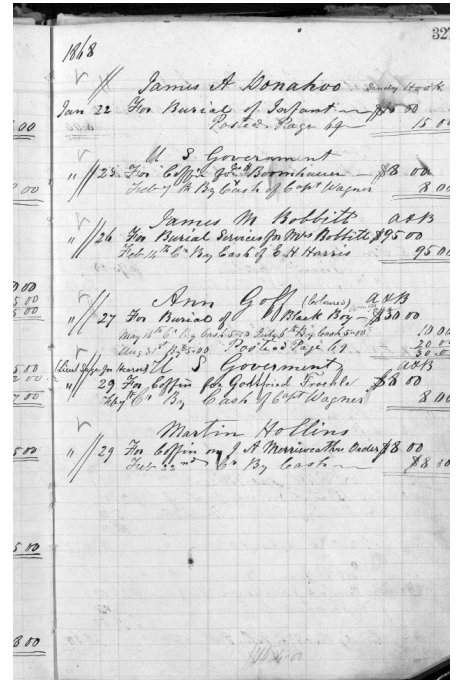 327
1868
James A Donahoo Sandy Hook
Jan 22 For Burial of Infant — $15 00
Posted Page 69 — 15 00
U S Government
" 25 For Coffin for Boomhauer — $8 00
Feb 7th By Cash of Capt Wagner 8 00
James M Bobbitt A&B
" 26 For Burial Services for Mrs Bobbitt $95 00
Feb 14th Cr By Cash of E H Harris 95 00
Ann Goff (Coloured) A&B
" 27 For Burial of Black Boy — $30 00
May 16th Cr By Cash 5-00 July 6th By Cash 5-00 10 00
Aug 31st By 5-00 Posted Page 69 20 00
30 00
(Lieut for Hearse) U S Goverment A&B
" 29 For Coffin for Gottfried $8 00
Feb 7th Cr By Cash of Capt Wagner 8 00
Martin Hollins
" 29 For Coffin on J A Merriweather Order $8 00
Feb 22nd Cr By Cash — $8 00